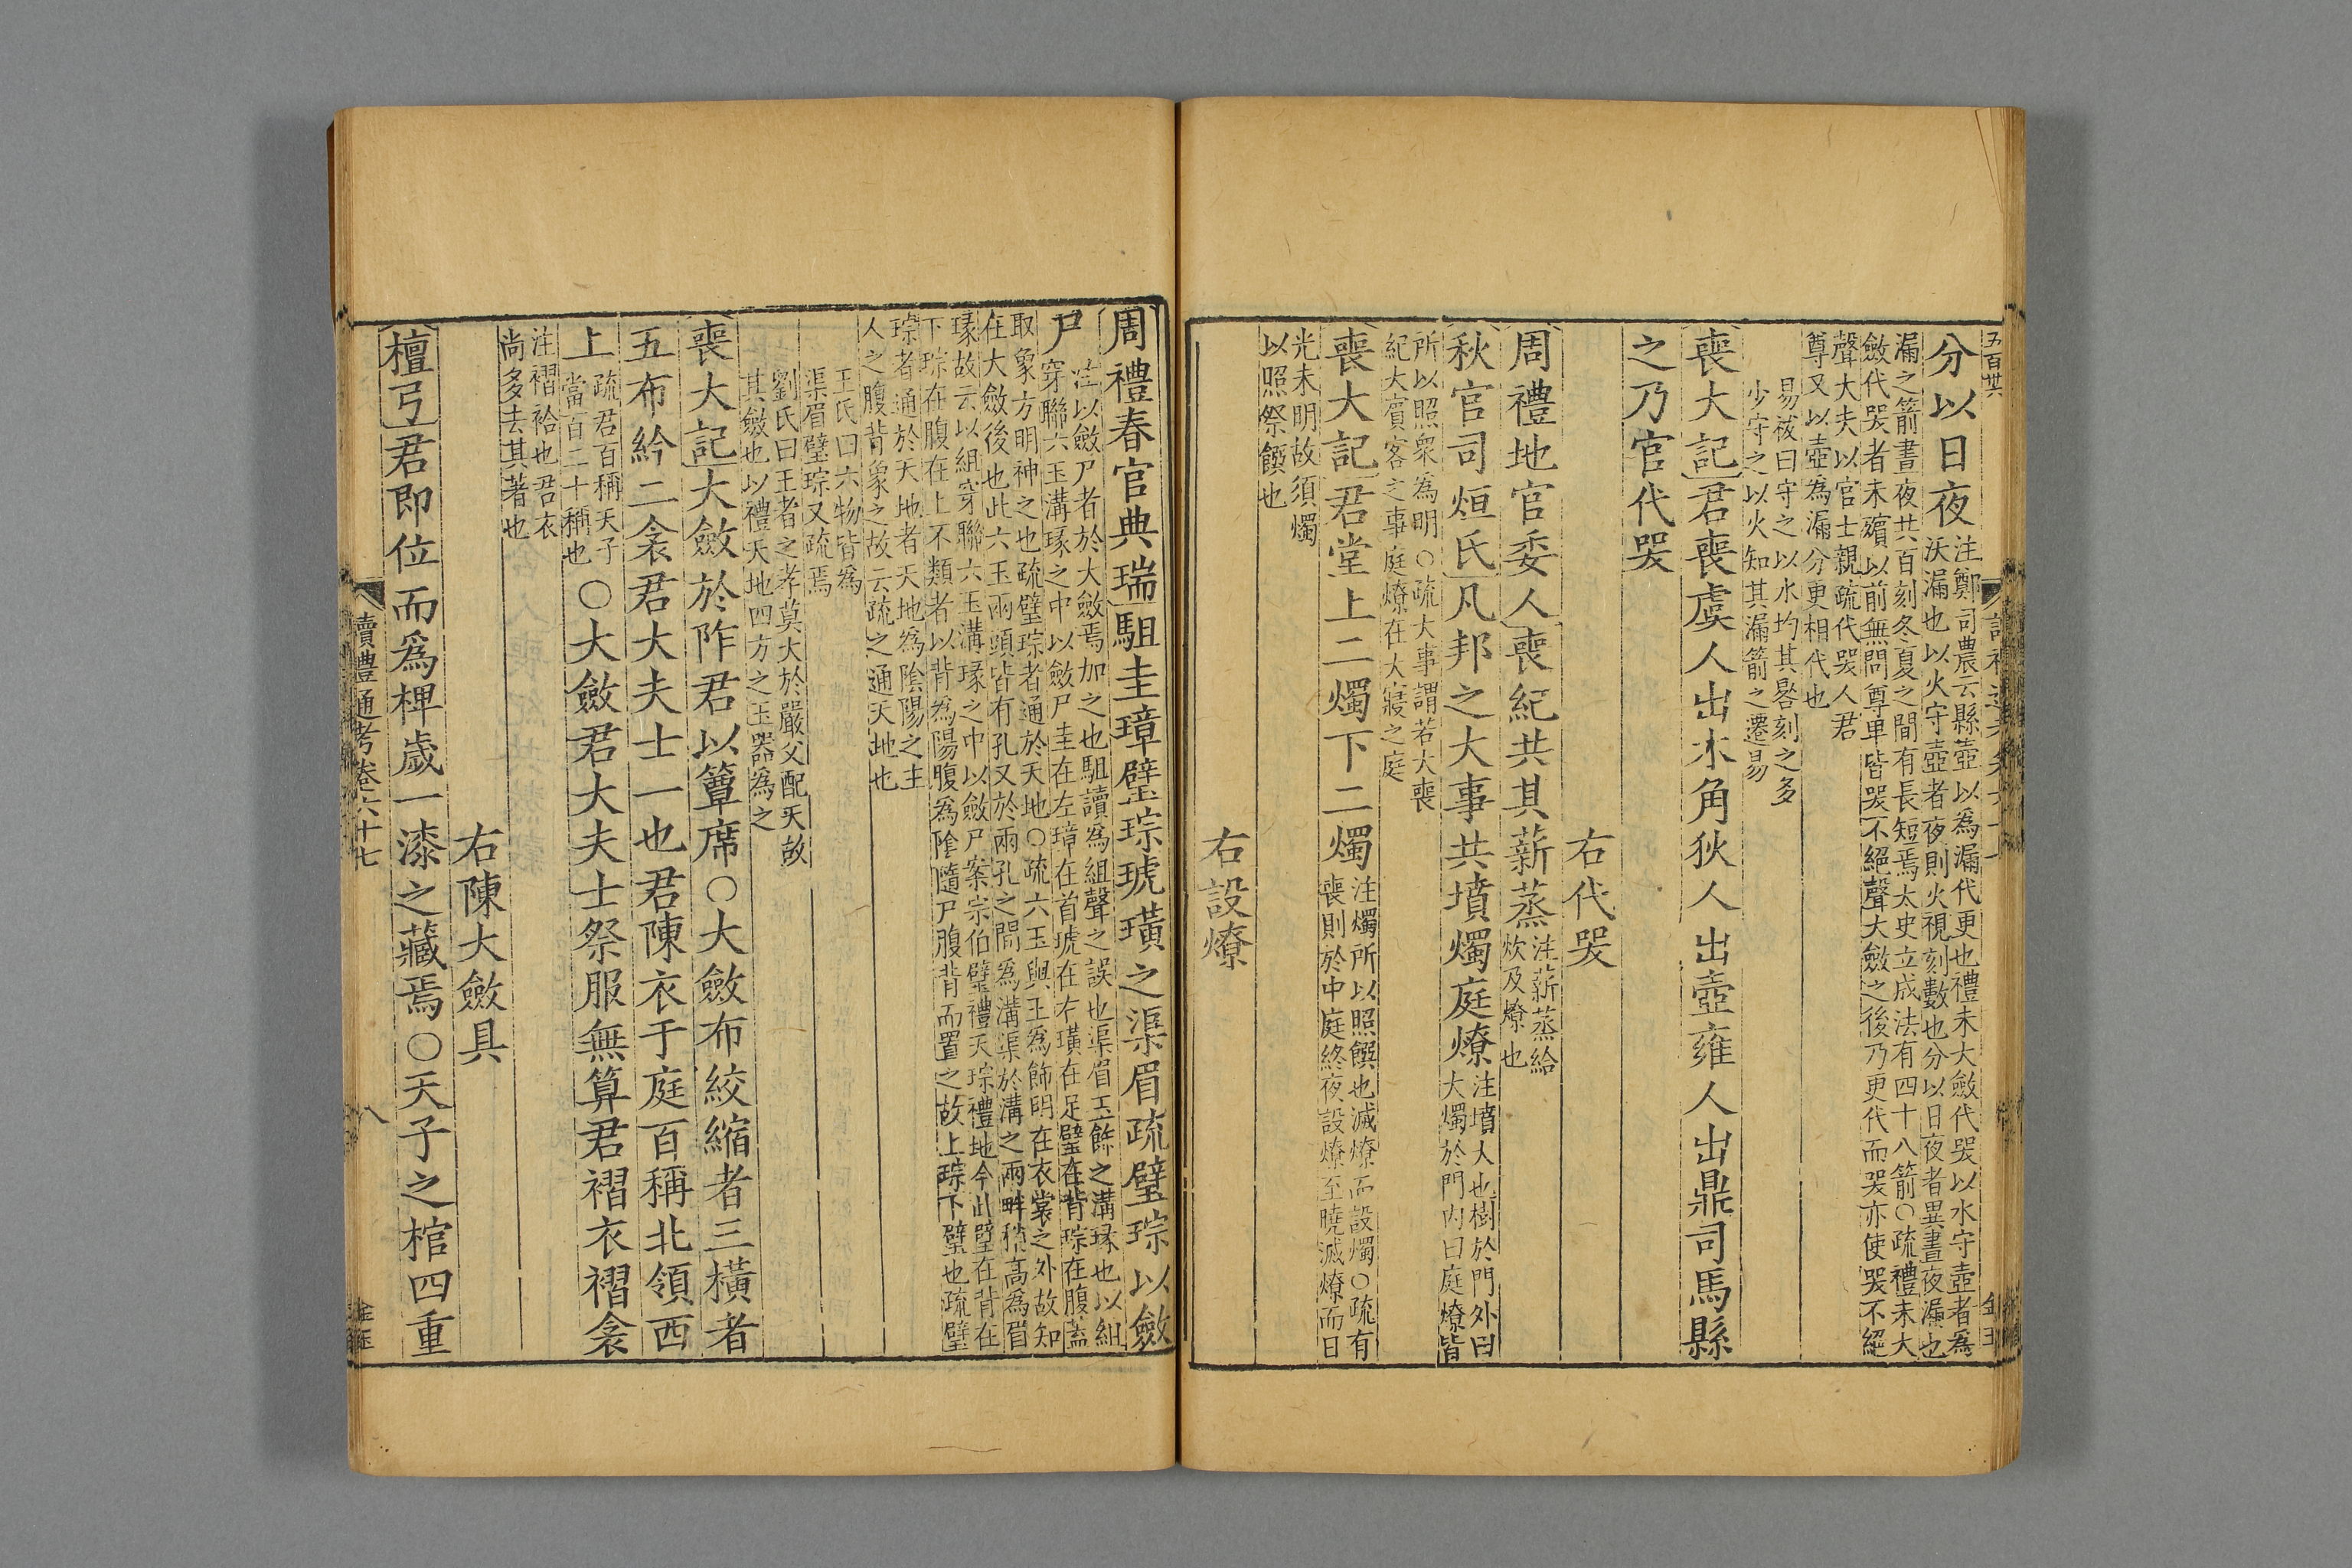 分以日夜
注鄭司農云縣壺以為漏代更也禮未大斂代哭以水守壺者為
沃漏也以火守壺者夜則火視刻數也分以日夜者異晝夜漏也
漏之箭晝夜共百刻冬夏之間有長短焉太史立成法有四十八箭○疏禮未大
斂代哭者未殯以前無問尊卑皆哭不絕聲大斂之後乃更代而哭亦使哭不絕
聲大夫以官士親疏代哭人君
尊又以壺為漏分更相代也
易祓曰守之以水均其晷刻之多
少守之以火知其漏箭之遷易
喪大記君喪虞人出木角狄人出壺雍人出鼎司馬縣
之乃官代哭
右代哭
周禮地官委人喪紀共其薪蒸
注薪蒸給
炊及燎也
秋官司烜氏凡邦之大事共墳燭庭燎
注墳大也樹於門外曰
大燭於門內曰庭燎皆
所以照衆為明○疏大事謂若大喪
紀大賓客之事庭燎在大寢之庭
喪大記君堂上二燭下二燭
注燭所以照饌也滅燎而設燭○疏有
喪則於中庭終夜設燎至曉滅燎而日
光未明故須燭
以照祭饌也
右設燎
周禮春官典瑞駔圭璋璧琮琥璜之渠眉疏璧琮以斂
尸
注以斂尸者於大斂焉加之也駔讀為組聲之誤也渠眉玉飾之溝瑑也以組
穿聯六玉溝瑑之中以斂尸圭在左璋在首琥在右璜在足璧在背琮在腹蓋
取象方明神之也疏璧琮者通於天地○疏六玉與王為飾明在衣裳之外故知
在大斂後也此六玉兩頭皆有孔又於兩孔之間為溝渠於溝之兩畔稍高為眉
瑑故云以組穿聯六玉溝瑑之中以斂尸案宗伯璧禮天琮禮地今此璧在背在
下琮在腹在上不類者以背為陽腹為陰隨尸腹背而置之故上琮下璧也疏璧
琮者通於天地者天地為陰陽之主
人之腹背象之故云疏之通天地也
王氏曰六物皆為
渠眉璧琮又疏焉
劉氏曰王者之孝莫大於嚴父配天故
其斂也以禮天地四方之玉器為之
喪大記大斂於阼君以簟席○大斂布絞縮者三橫者
五布紟二衾君大夫士一也君陳衣于庭百稱北領西
上
疏君百稱天子
當百二十稱也
○大斂君大夫士祭服無算君褶衣褶衾
注褶袷也君衣
尚多去其著也
右陳大斂具
檀弓君即位而為椑歲一漆之藏焉○天子之棺四重
讀禮通考卷六十七
八